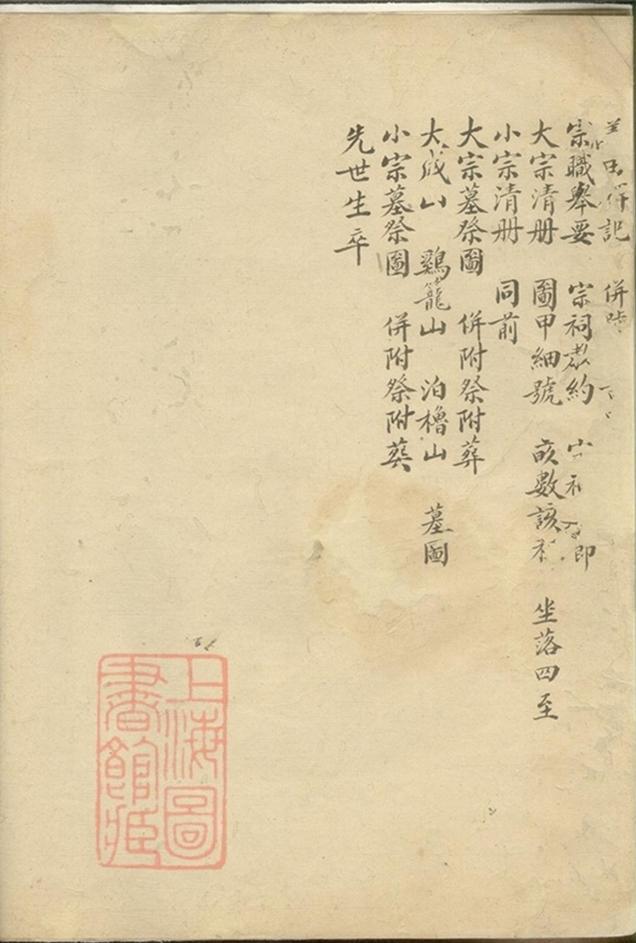 併記 併
宗職舉要 宗祠 約 即
大宗清册 圖甲細號 畝數該 坐落四至
小宗清册 同前
大宗墓祭圖 併附祭附葬
大成山 鷄籠山 泊櫓山 墓圖
小宗墓祭圖 併附祭附葬
先世生卒
上海圖書館藏